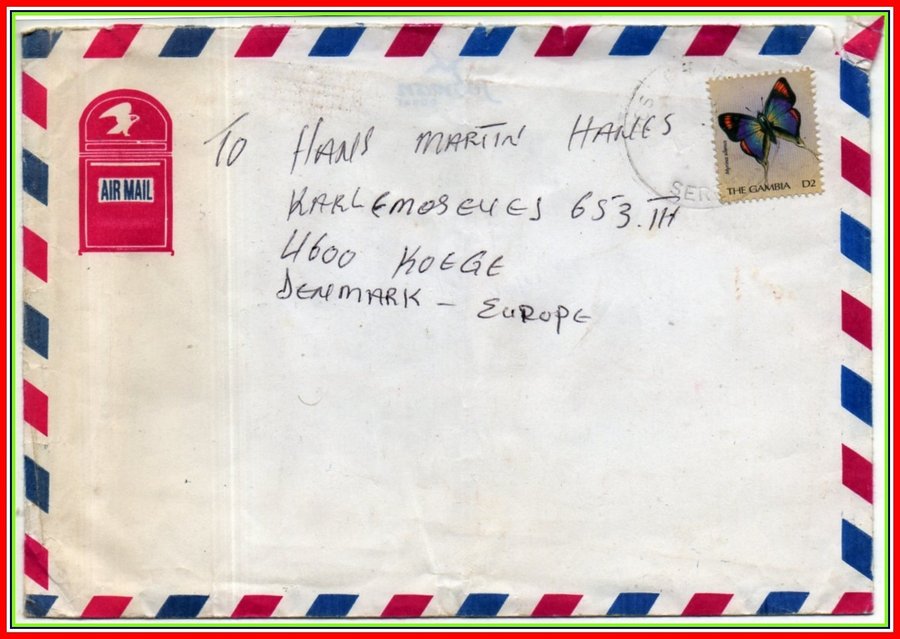 AIR MAIL
TO HANS MARTIN HANES
KARLEMOSEVEJ 653.TH
4600 KOEGE
DENMARK - EUROPE
THE GAMBIA D2
SER